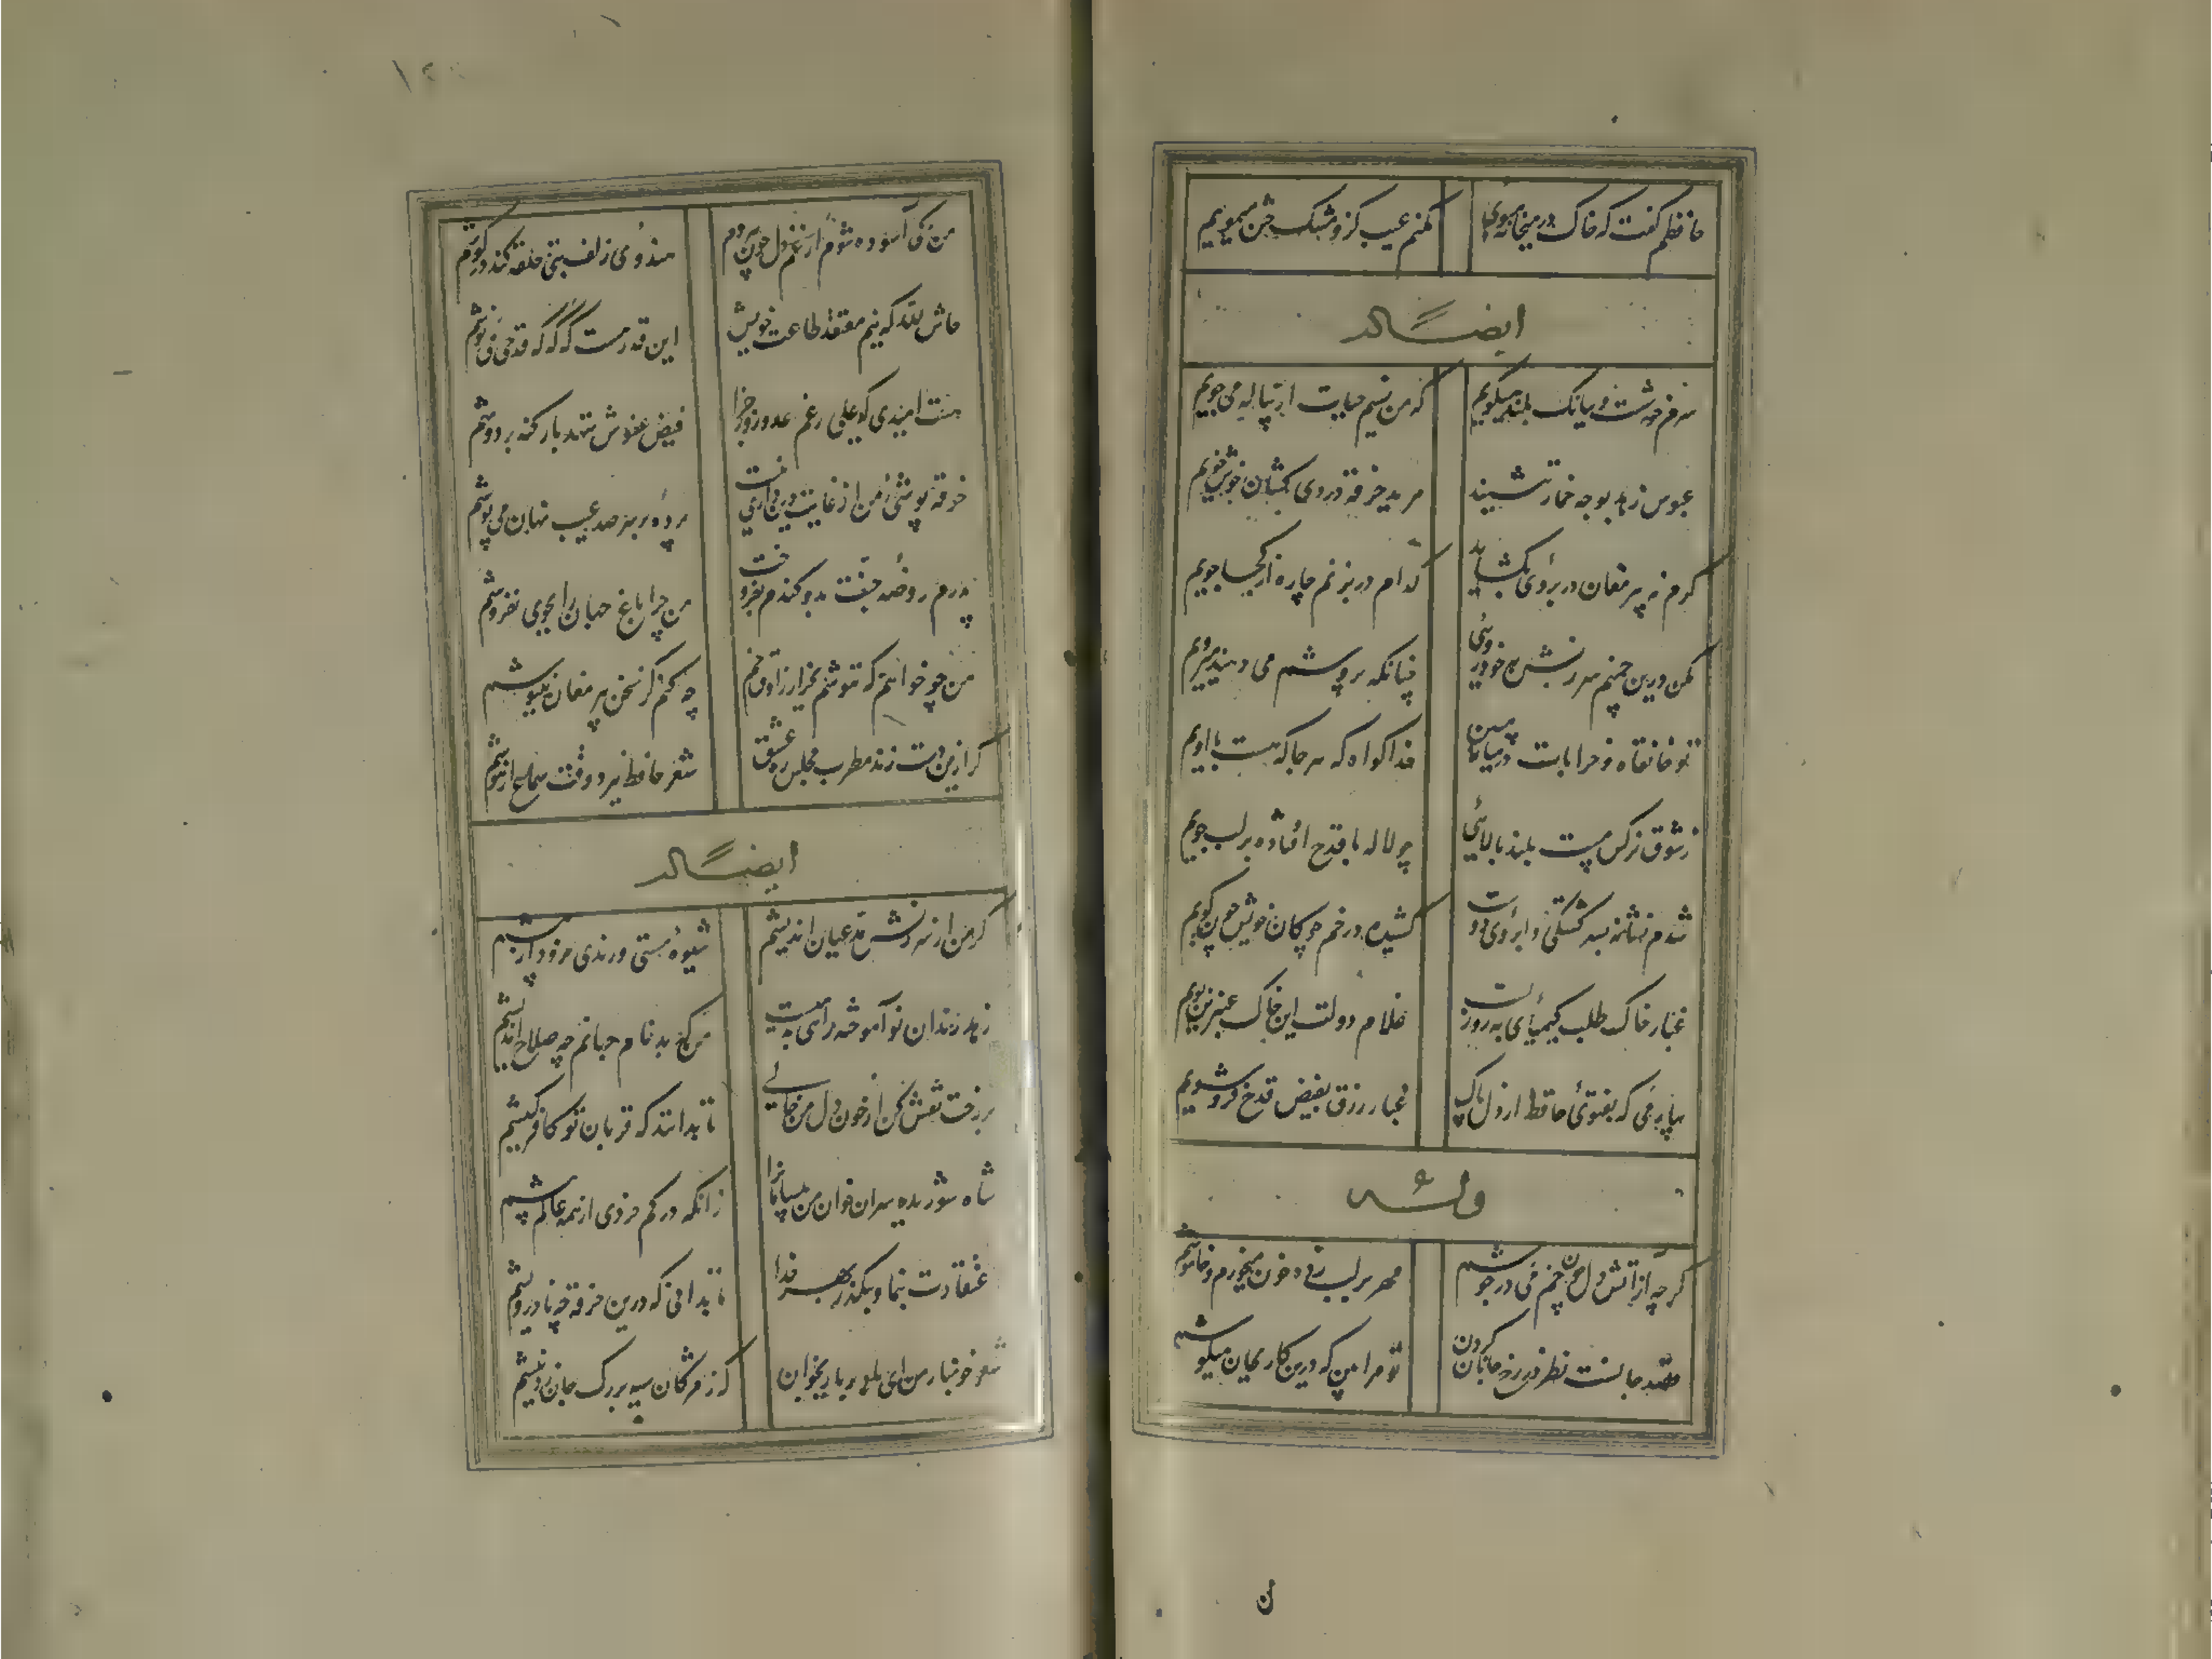 حافظم گفت که خاک در میخانه مبوی
مکنم عیب کزو مشک ختن میبویم
ایضاً له
سرم خوشست و ببانک بلند میگویم
که من نسیم حیات از پیاله می جویم
عبوس زهد بوجه خمار ننشیند
مرید خرقه دردی کشان خوش خویم
گرم نه پیر مغان در بروی بکشاید
کدام در بزنم چاره از کجا جویم
مکن درین چمنم سرزنش بخودروئی
چنانکه پرورشم می دهند میرویم
تو خانقاه و خرابات در میانه مبین
خدا کواه که هر جا که هست با اویم
ز شوق نرکس مست بلند بالائی
چو لاله با قدح افتاده بر لب جویم
شدم فسانه بسرکشتکی و ابروی دوست
کشیده در خم چوکان خویش چون کویم
غبار خاک طلب کیمیای بهروزیست
غلام دولت این خاک عنبرین بویم
بیار می که بفتوی حافظ از دل پاک
غبار زرق بفیض قدح فرو شویم
وله
کرچه از آتش دل چون خم می در جوشم
مهر بر لب زده خون میخورم و خاموشم
قصد جانست نظر در رخ جانان کردن
تو مرا بین که درین کار بجان میکوشم
ن
۱۲۰
من کی آسوده شوم از غم دل چون هردم
هندوی زلف بتی حلقه کند در کوشم
حاش لله که نیم معتقد طاعت خویش
این قدر هست که که که قدحی می نوشم
هست امیدی که علی رغم عدو روز جزا
فیض عفوش ننهد بار کنه بر دوشم
خرقه پوشی من از غایت دین داری نیست
پرده بر سر صد عیب نهان می پوشم
پدرم روضه جنت بدو کندم بفروخت
من چرا باغ جهان را بجوی نفروشم
من چو خواهم که ننوشم بجز از راوق خم
چه کنم کر سخن پیر مغان ننیوشم
کر ازین دست زند مطرب مجلس ره عشق
شعر حافظ ببرد وقت سماع از هوشم
ایضاً له
کر من از سرزنش مدعیان اندیشم
شیوه مستی و رندی نرود از پیشم
زهد رندان نوآموخته راهی بدهیست
من که بدنام جهانم چه صلاح اندیشم
بر رخت نقش کن از خون دل من خالی
تا بدانند که قربان تو کافر کیشم
شاه شوریده سران خوان من بیسامانرا
زانکه در کم خردی از همه عالم بیشم
اعتقادت بنما و بکذر بهر خدا
تا بدانی که درین خرقه چه نادرویشم
شعر خونبار من ای باد بر یار بخوان
که ز مژکان سیه بر رک جان زد نیشم